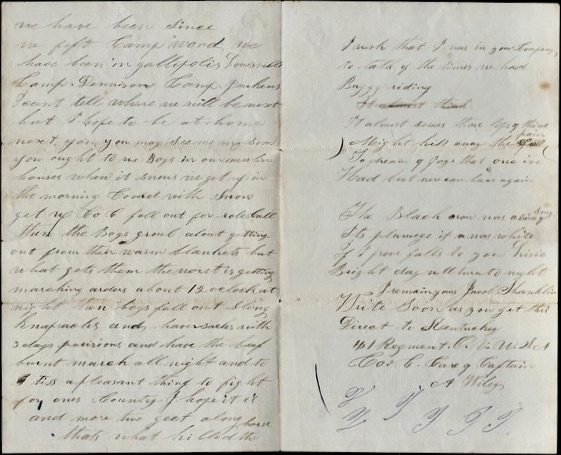 we have been since
we left Camp wood we
have been in gallipolis Louisville
Camp Dennison Camp Jenkens
I cant tell where we will be next
but I hope to be at home
next you may see me soon
you ought to see Boys in our
houses when it snows we get up in
the morning Coverd with Snow
get up to 6 fall out for role Call
then the Boys growl about getting
out from their warm blankets but
what gets them the worst is getting
marching orders about 12 oclock at
night then boys fall out Sling
Knapsacks and haversacks with
3 days and have the
march all night and to
tis a pleasant thing to fight
for ones Country I hope it is
and more two get along
thats what killed the horse
I wish that I was in your Company
to talk of the times we had
Buggy riding
It almost seems those lips of thine
Might kiss away the pain
To dream of Joys that one
Had but never can have again
The Black crow was a song
Its plumage if a was white
if I prove falls to you
Bright day will turn to night
I remain yours Jacob
Write Soon as you get this
Direct to Kentucky
Regment O. V. U S A
Co C Care of Captain
A Wiley